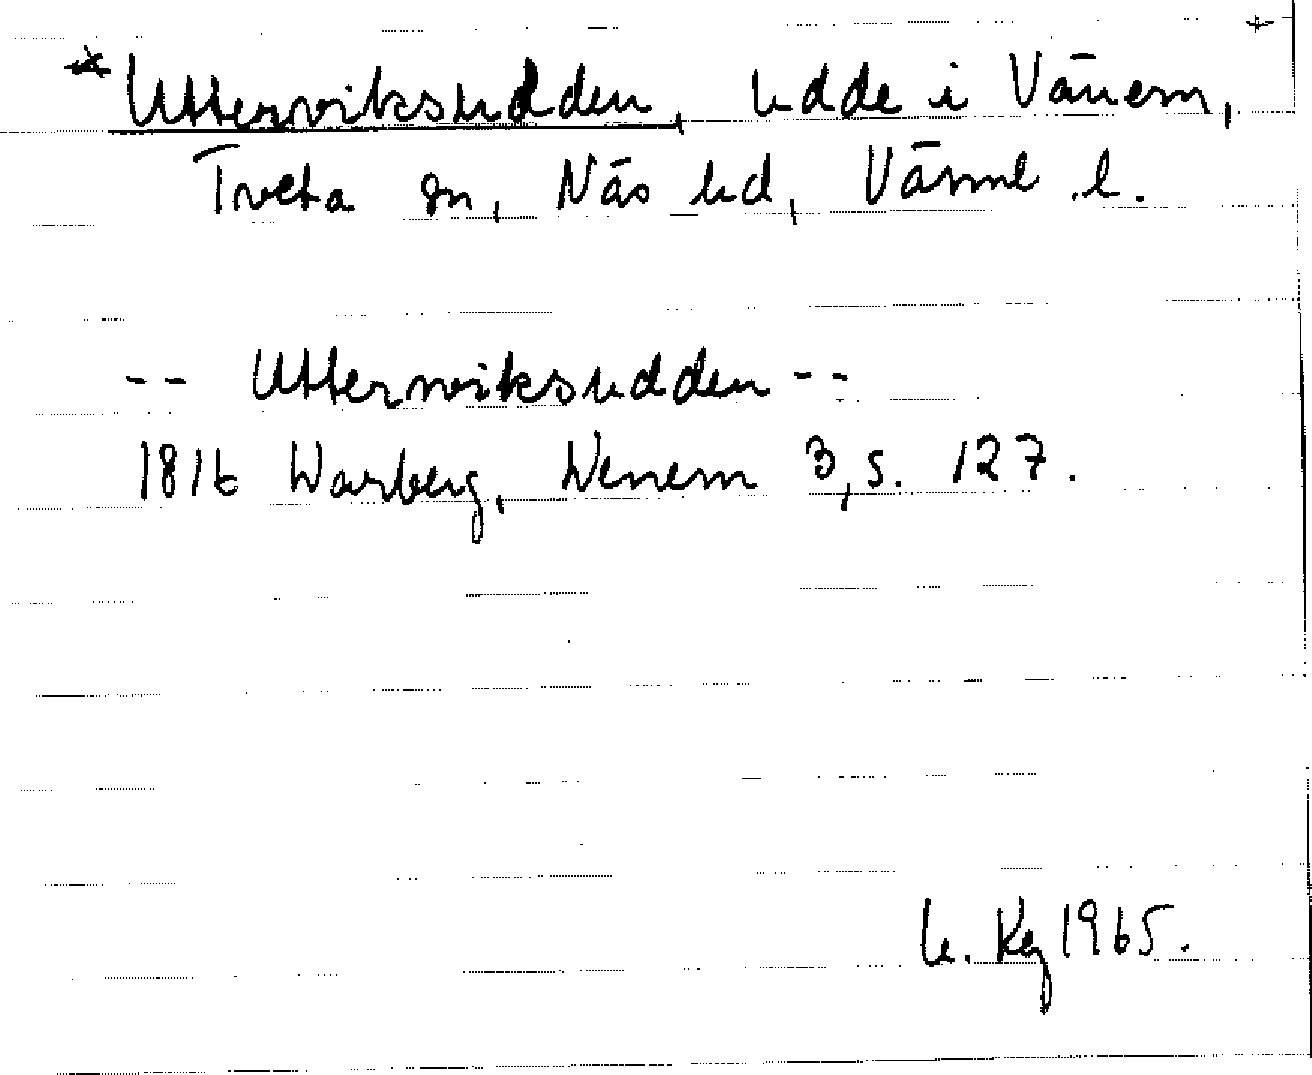 * Utterviksudden, udde i Vänern,
Tveta sn, Näs hd, Värml. l.
-- Utterwiksudden --
1816 Warberg, Wenern 3, s. 127.
1965.